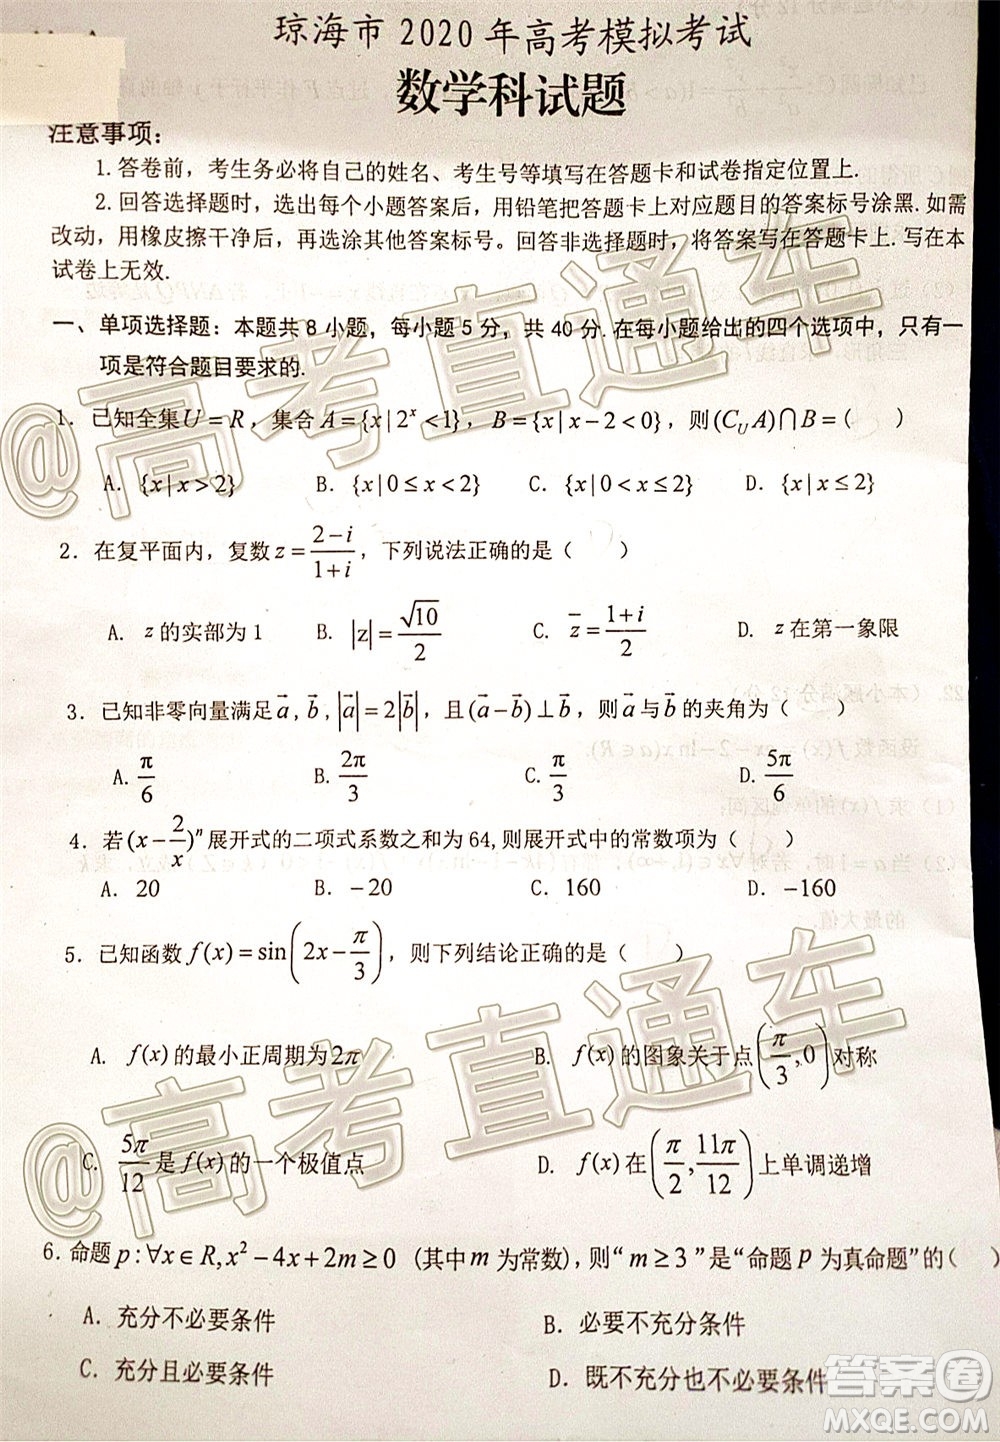 琼海市 2020 年高考模拟考试
数学科试题
注意事项：
1. 答卷前，考生务必将自己的姓名、考生号等填写在答题卡和试卷指定位置上.
2. 回答选择题时，选出每个小题答案后，用铅笔把答题卡上对应题目的答案标号涂黑. 如需
改动，用橡皮擦干净后，再选涂其他答案标号。回答非选择题时，将答案写在答题卡上. 写在本
试卷上无效.
一、单项选择题：本题共 8 小题，每小题 5 分，共 40 分. 在每小题给出的四个选项中，只有一
项是符合题目要求的.
1. 已知全集U = R，集合 A = {x | 2^x < 1}，B = {x | x − 2 < 0}，则 (C_U A) ∩ B = (　　)
A. {x | x > 2}　B. {x | 0 ≤ x < 2}　C. {x | 0 < x ≤ 2}　D. {x | x ≤ 2}
2. 在复平面内，复数 z = (2−i)/(1+i)，下列说法正确的是（　　）
A. z 的实部为 1　B. |z| = √10/2　C. z̄ = (1+i)/2　D. z 在第一象限
3. 已知非零向量满足 a⃗, b⃗, |a⃗| = 2|b⃗|，且 (a⃗ − b⃗) ⊥ b⃗，则 a⃗ 与 b⃗ 的夹角为（　　）
A. π/6　B. 2π/3　C. π/3　D. 5π/6
4. 若 (x − 2/x)^n 展开式的二项式系数之和为 64, 则展开式中的常数项为（　　）
A. 20　B. −20　C. 160　D. −160
5. 已知函数 f(x) = sin(2x − π/3)，则下列结论正确的是（　　）
A. f(x) 的最小正周期为 2π　B. f(x) 的图象关于点 (π/3, 0) 对称
C. 5π/12 是 f(x) 的一个极值点　D. f(x) 在 (π/2, 11π/12) 上单调递增
6. 命题 p : ∀x ∈ R, x² − 4x + 2m ≥ 0 (其中 m 为常数)，则“ m ≥ 3 ”是“命题 P 为真命题”的（　　）
A. 充分不必要条件　B. 必要不充分条件
C. 充分且必要条件　D. 既不充分也不必要条件
@高考直通车
@高考直通车
答案圈
MXQE.COM